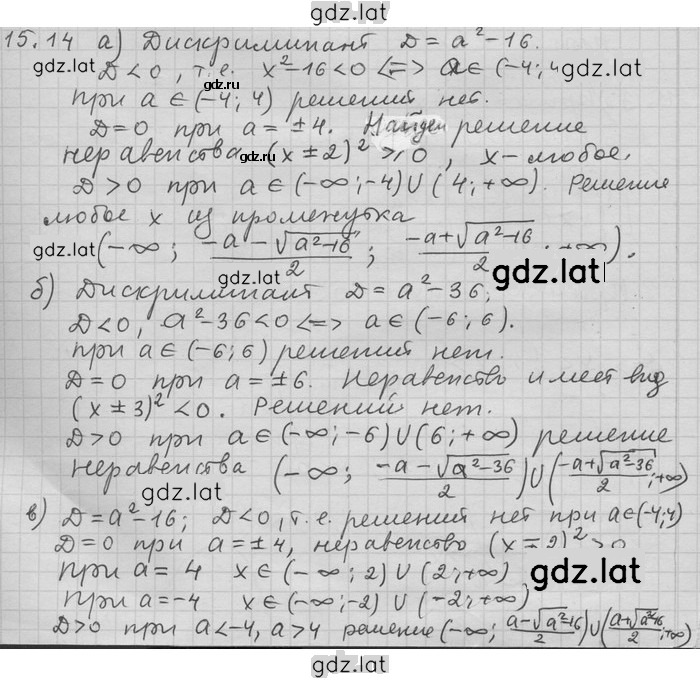 gdz.lat
15.14 а) Дискриминант D = a² - 16.
gdz.lat D < 0, т.е. x² - 16 < 0 <=> a ∈ (-4; 4 gdz.lat
при a ∈ (-4; 4) решений нет.
D = 0 при a = ± 4. Найдем решение
неравенства (x ± 2)² ⩾ 0, x - любое,
D > 0 при a ∈ (-∞; -4) ∪ (4; +∞). Решение
любое x из промежутка
gdz.lat (-∞; (-a - √(a² - 16))/2; (-a + √(a² - 16))/2 ; +∞).
gdz.lat gdz.lat
б) Дискриминант D = a² - 36,
D < 0, a² - 36 < 0 <=> a ∈ (-6; 6).
при a ∈ (-6; 6) решений нет.
D = 0 при a = ± 6. Неравенство имеет вид
(x ± 3)² < 0. Решений нет.
D > 0 при a ∈ (-∞; -6) ∪ (6; +∞) решение
неравенства (-∞; (-a - √(a² - 36))/2) ∪ ((-a + √(a² - 36))/2; +∞)
gdz.lat
в) D = a² - 16; D < 0, т.е. решений нет при a ∈ (-4; 4)
D = 0 при a = ± 4, неравенство (x ∓ 2)² > 0
При a = 4 x ∈ (-∞; 2) ∪ (2; +∞) gdz.lat
При a = -4 x ∈ (-∞; -2) ∪ (-2; +∞)
D > 0 при a < -4, a > 4 решение (-∞; (a - √(a² - 16))/2) ∪ ((a + √(a² - 16))/2; +∞)
gdz.lat